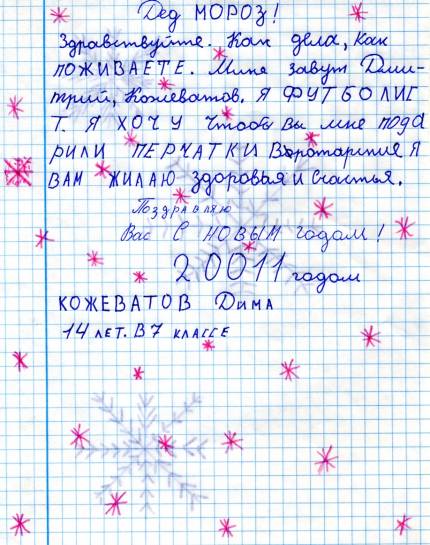 Дед МОРОЗ!
Здравствуйте. Как дела, Как
ПОЖИВАЕТЕ. Миня завут Дми-
трий, Кожеватов. Я ФУТБОЛИС
Т. Я ХОЧУ Чтобы Вы мне пода
рили ПЕРЧАТКИ Вротарские Я
ВАМ ЖИЛАЮ здоровья и счастья.
Поздравляю
Вас С НОВЫМ годом!
20011 годом
КОЖЕВАТОВ Дима
14 ЛЕТ. В 7 КЛАССЕ